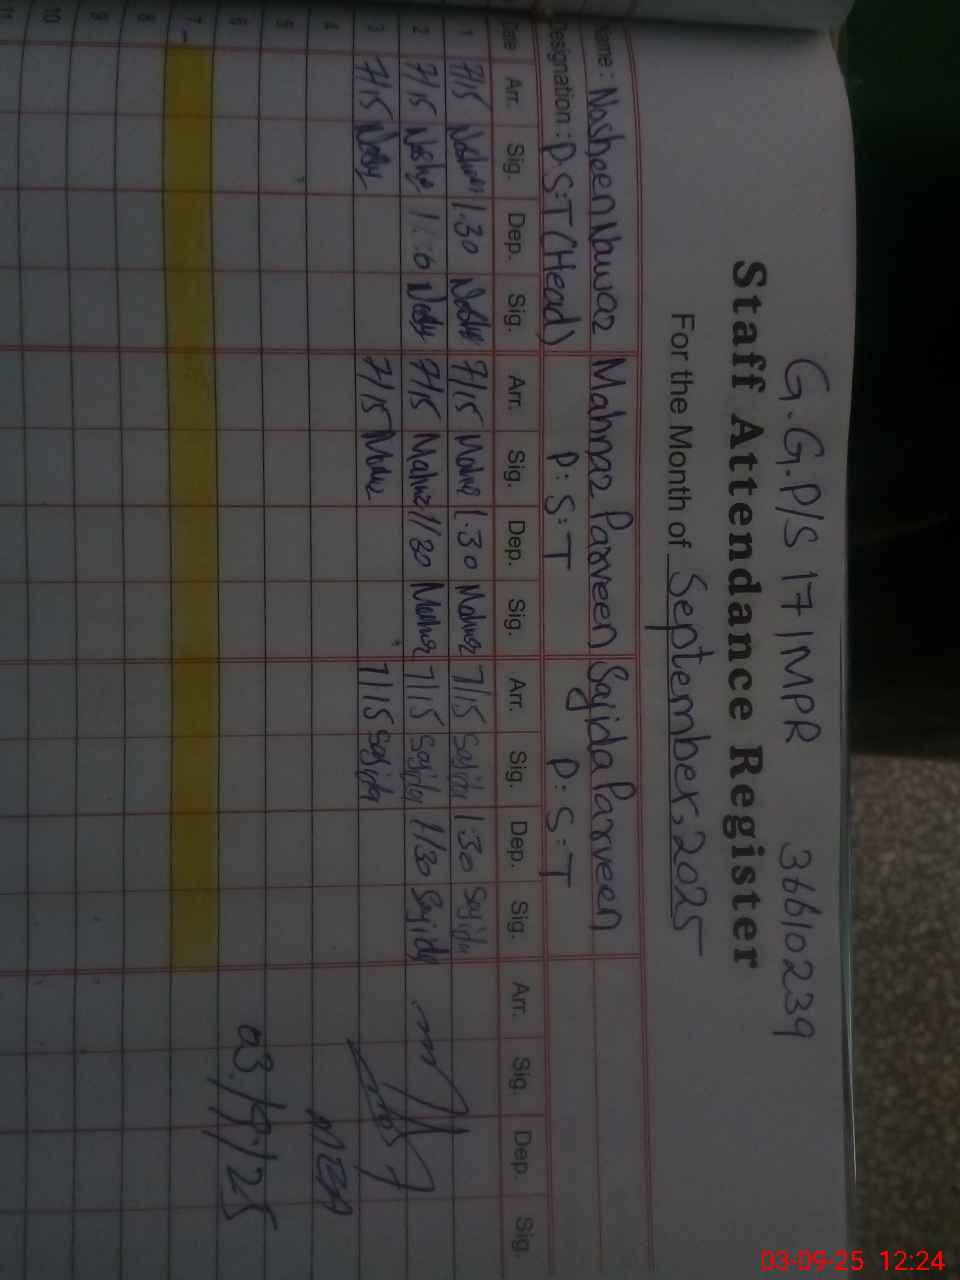 G.G.P/S 171MPR 36610239
Staff Attendance Register
For the Month of September, 2025
Name: Nosheen Nawaz Mahnaz Parveen Sajida Parveen
Designation: P.S.T (Head) P.S.T P.S.T
Date Arr. Sig. Dep. Sig. Arr. Sig. Dep. Sig. Arr. Sig. Dep. Sig. Arr. Sig. Dep. Sig.
1 7/15 1.30 7/15 1.30 7/15 Sajida 1.30 Sajida
2 7/15 7/15 Mahnaz 1/30 7/15 Sajida 1/30 Sajida
3 7/15 7/15 7/15 Sajida
4
5
6 03/9/25
7
8
9
10
11
03-09-25 12:24